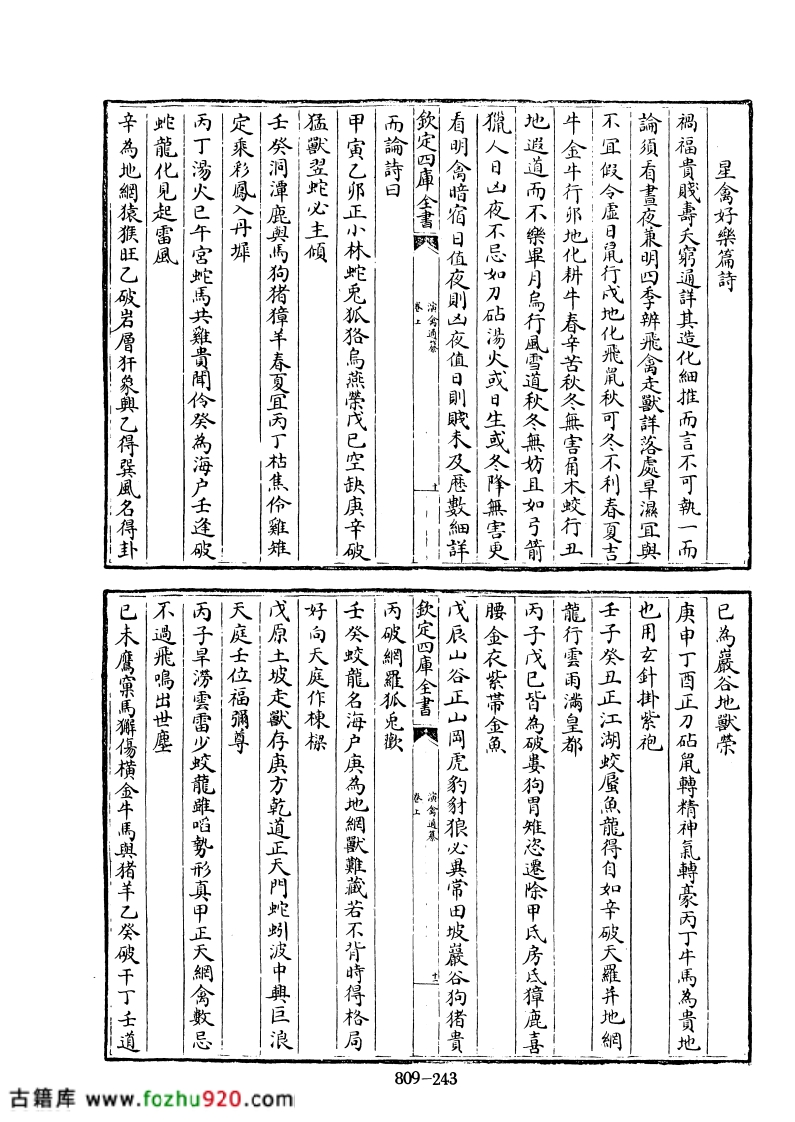 星禽好樂篇詩
禍福貴賤壽夭窮通詳其造化細推而言不可執一而
論須看晝夜兼明四季辨飛禽走獸詳落處旱濕宜與
不宜假令虛日鼠行戍地化飛鼠秋可冬不利春夏吉
牛金牛行卯地化耕牛春辛苦秋冬無害角木蛟行丑
地遐道而不樂畢月烏行風雪道秋冬無妨且如弓箭
獵人日凶夜不忌如刀砧湯火或日生或冬降無害更
看明禽暗宿日值夜則凶夜值日則賤未及歷數細詳
欽定四庫全書
演禽通纂
卷上
十
而論詩曰
甲寅乙卯正小林蛇兎狐狢烏燕榮戊巳空缺庚辛破
猛獸翌蛇必主傾
壬癸洞潭鹿與馬狗猪獐羊春夏宜丙丁枯焦伶雞雉
定乘彩鳳入丹墀
丙丁湯火巳午宮蛇馬共雞貴聞伶癸為海户壬逢破
蛇龍化見起雷風
辛為地網猿猴旺乙破岩層犴象興乙得巽風名得卦
巳為巖谷地獸榮
庚申丁酉正刀砧鼠轉精神氣轉豪丙丁牛馬為貴地
也用玄針掛紫袍
壬子癸丑正江湖蛟蜃魚龍得自如辛破天羅并地網
龍行雲雨滿皇都
丙子戊巳皆為破婁狗胃雉恣遷除甲氐房氐獐鹿喜
腰金衣紫帶金魚
戊辰山谷正山岡虎豹豺狼必異常田坡巖谷狗猪貴
欽定四庫全書
演禽通纂
卷上
十二
丙破網羅狐兎歡
壬癸蛟龍名海户庚為地網獸難藏若不背時得格局
好向天庭作棟樑
戊原土坡走獸存庚方乾道正天門蛇蚓波中興巨浪
天庭壬位福彌尊
丙子旱澇雲雷少蛟龍雖㗖勢形真甲正天網禽數忌
不過飛鳴出世塵
已未鷹窠馬獬傷橫金牛馬與猪羊乙癸破干丁壬道
809-243
古籍库 www.fozhu920.com